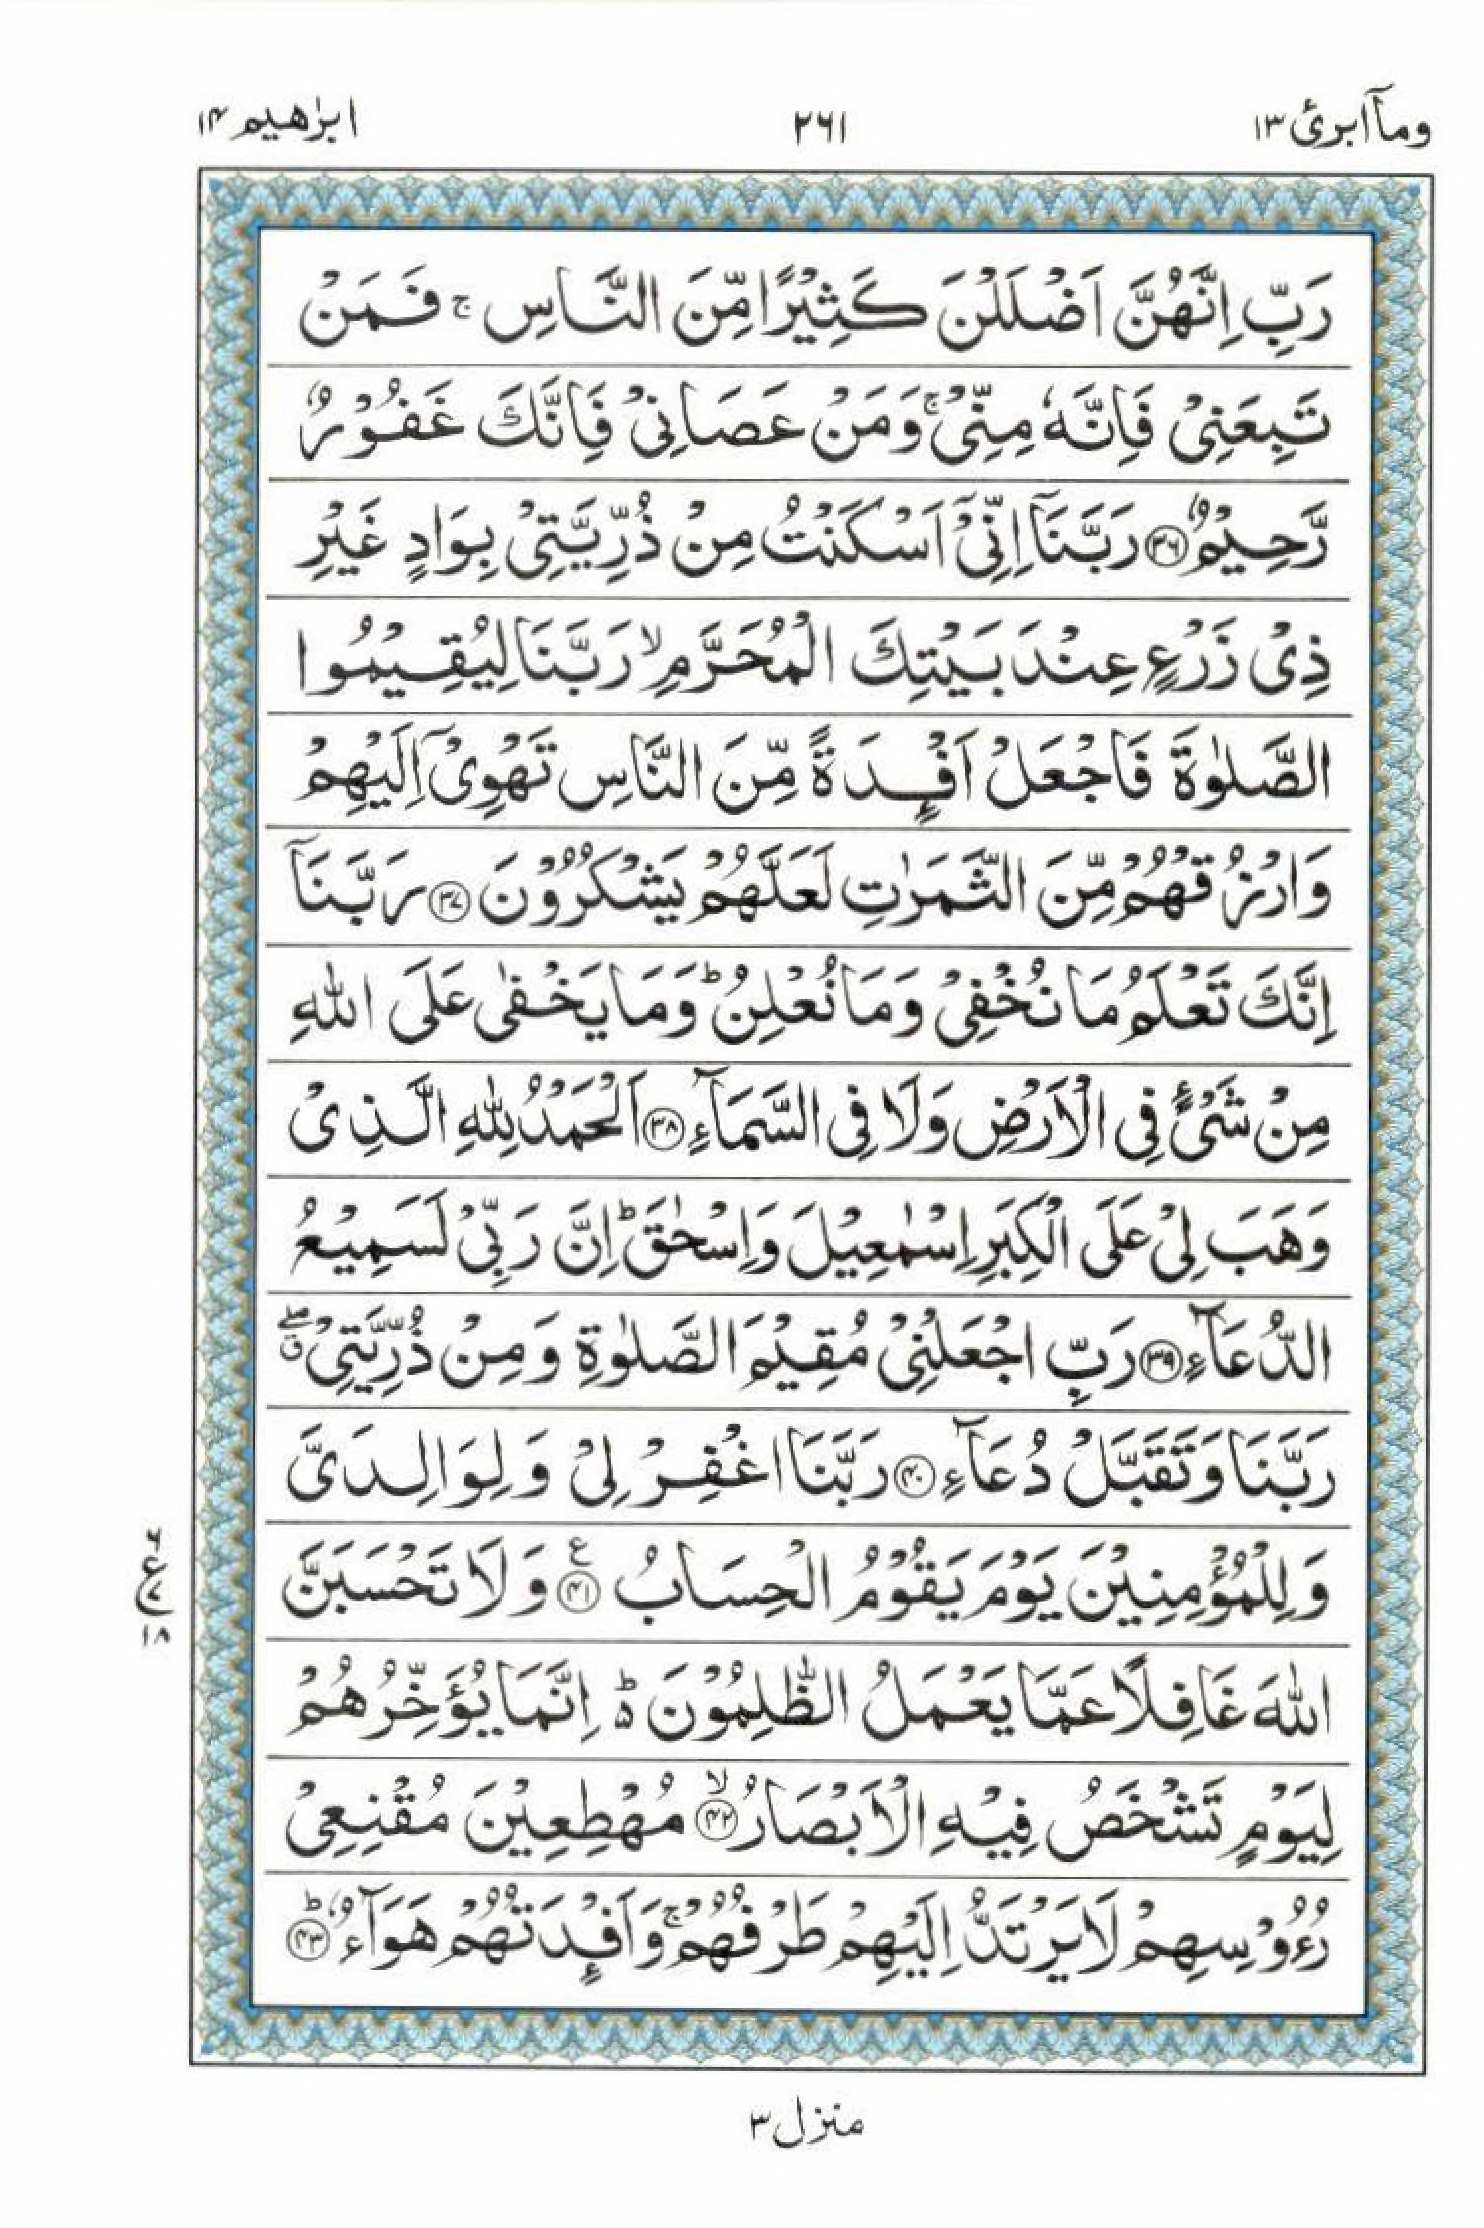 وماۤ ابرئ ١٣
٢٦١
ابرٰهیم ١۴
رَبِّ اِنَّهُنَّ اَضْلَلْنَ كَثِیْرًا مِّنَ النَّاسِ ۚ فَمَنْ
تَبِعَنِیْ فَاِنَّهٗ مِنِّیْ ۚ وَمَنْ عَصَانِیْ فَاِنَّكَ غَفُوْرٌ
رَّحِیْمٌ ﴿۳۶﴾ رَبَّنَاۤ اِنِّیْۤ اَسْكَنْتُ مِنْ ذُرِّیَّتِیْ بِوَادٍ غَیْرِ
ذِیْ زَرْعٍ عِنْدَ بَیْتِكَ الْمُحَرَّمِ ۙ رَبَّنَا لِیُقِیْمُوا
الصَّلٰوةَ فَاجْعَلْ اَفْـِٕدَةً مِّنَ النَّاسِ تَهْوِیْۤ اِلَیْهِمْ
وَارْزُقْهُمْ مِّنَ الثَّمَرٰتِ لَعَلَّهُمْ یَشْكُرُوْنَ ﴿۳۷﴾ رَبَّنَاۤ
اِنَّكَ تَعْلَمُ مَا نُخْفِیْ وَمَا نُعْلِنُ ؕ وَمَا یَخْفٰی عَلَی اللّٰهِ
مِنْ شَیْءٍ فِی الْاَرْضِ وَلَا فِی السَّمَآءِ ﴿۳۸﴾ اَلْحَمْدُ لِلّٰهِ الَّذِیْ
وَهَبَ لِیْ عَلَی الْكِبَرِ اِسْمٰعِیْلَ وَاِسْحٰقَ ؕ اِنَّ رَبِّیْ لَسَمِیْعُ
الدُّعَآءِ ﴿۳۹﴾ رَبِّ اجْعَلْنِیْ مُقِیْمَ الصَّلٰوةِ وَمِنْ ذُرِّیَّتِیْ ۖۗ
رَبَّنَا وَتَقَبَّلْ دُعَآءِ ﴿۴۰﴾ رَبَّنَا اغْفِرْ لِیْ وَلِوَالِدَیَّ
وَلِلْمُؤْمِنِیْنَ یَوْمَ یَقُوْمُ الْحِسَابُ ﴿۴۱﴾ ع وَلَا تَحْسَبَنَّ
٦ ع ٧ ١٨
اللّٰهَ غَافِلًا عَمَّا یَعْمَلُ الظّٰلِمُوْنَ ؕ۬ اِنَّمَا یُؤَخِّرُهُمْ
لِیَوْمٍ تَشْخَصُ فِیْهِ الْاَبْصَارُ ﴿۴۲﴾ ۙ مُهْطِعِیْنَ مُقْنِعِیْ
رُءُوْسِهِمْ لَا یَرْتَدُّ اِلَیْهِمْ طَرْفُهُمْ ۚ وَاَفْـِٕدَتُهُمْ هَوَآءٌ ﴿۴۳﴾ ؕ
منزل ٣